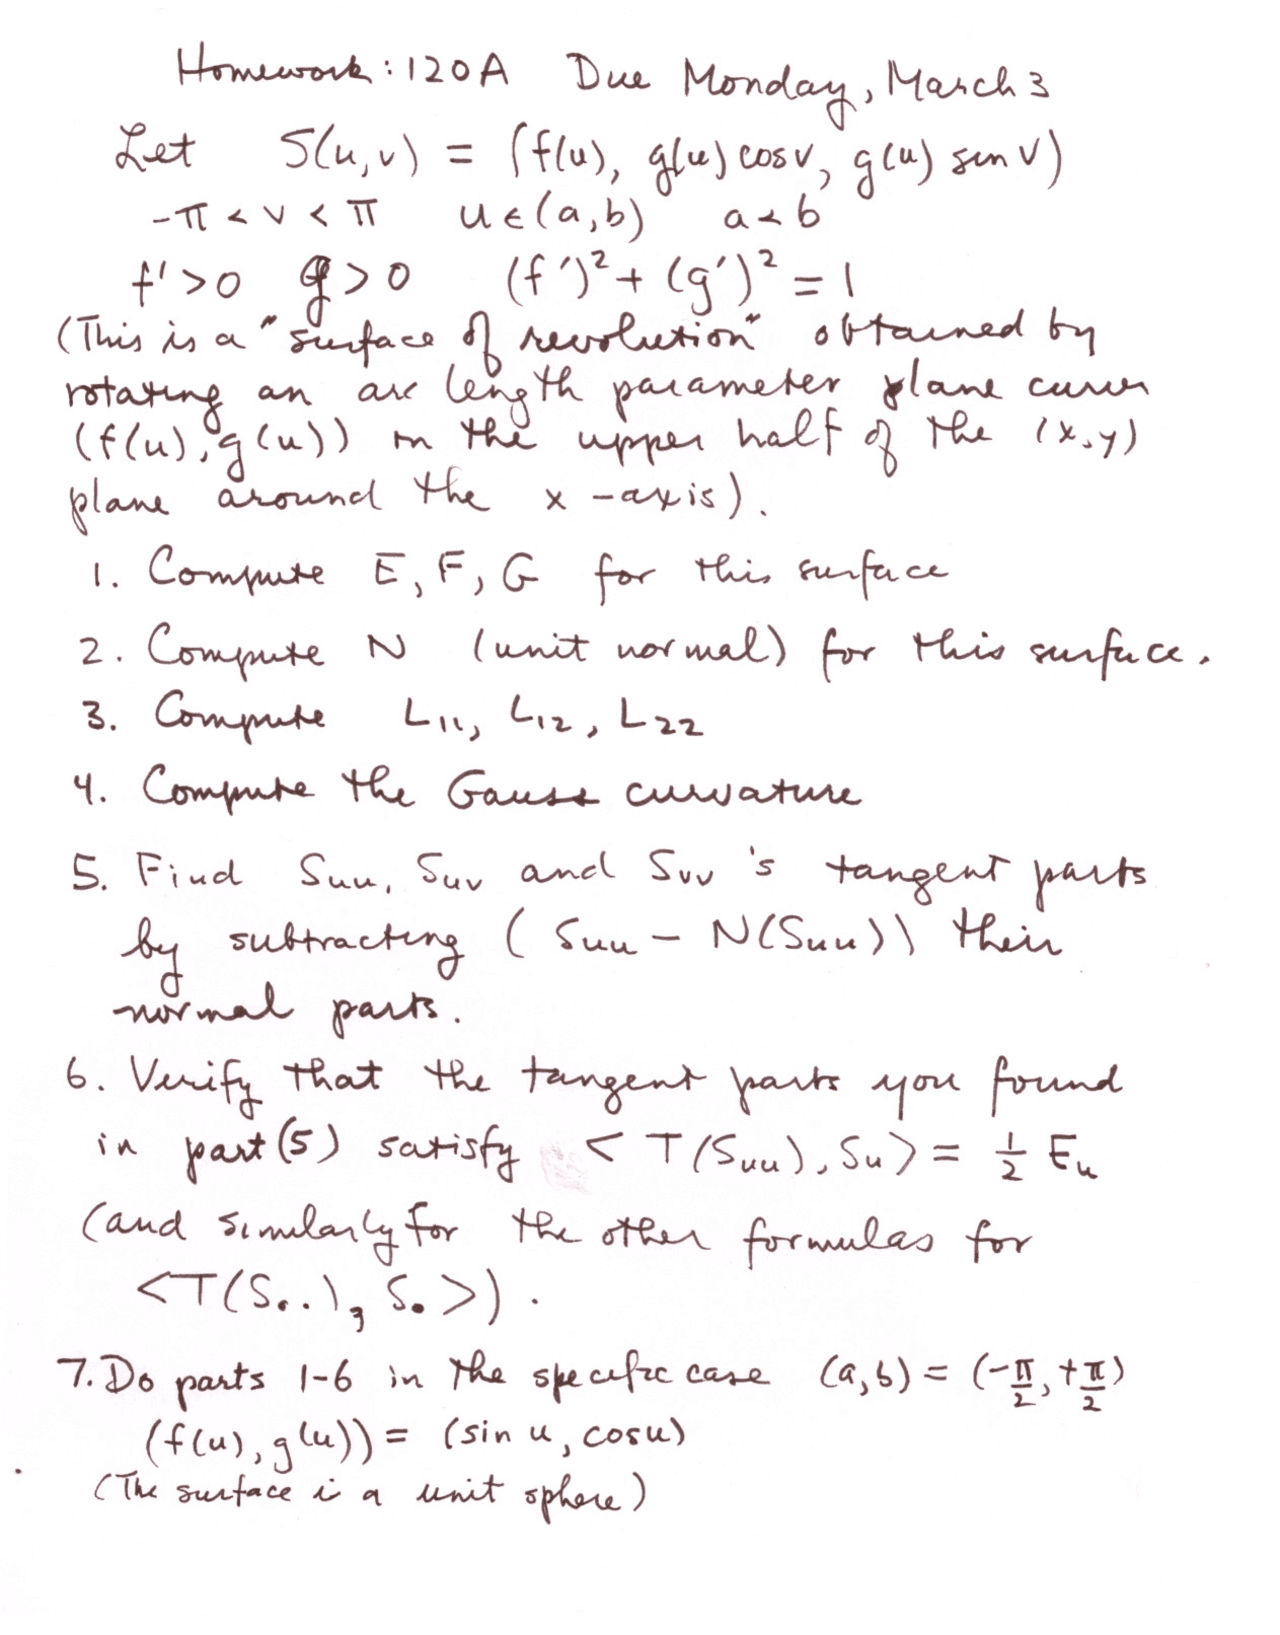 Homework: 120A Due Monday, March 3
Let S(u,v) = (f(u), g(u) cos v, g(u) sin v)
-π < v < π u ∈ (a,b) a < b
f' > 0 g > 0 (f')² + (g')² = 1
(This is a "surface of revolution" obtained by
rotating an arc length parameter plane curve
(f(u), g(u)) in the upper half of the (x,y)
plane around the x-axis).
1. Compute E, F, G for this surface
2. Compute N (unit normal) for this surface.
3. Compute L₁₁, L₁₂, L₂₂
4. Compute the Gauss curvature
5. Find Suu, Suv and Svv's tangent parts
by subtracting (Suu - N(Suu)) their
normal parts.
6. Verify that the tangent parts you found
in part (5) satisfy < T(Suu), Su> = ½ Eu
(and similarly for the other formulas for
<T(S..), S.>).
7. Do parts 1-6 in the specific case (a,b) = (-π/2, +π/2)
(f(u), g(u)) = (sin u, cos u)
(The surface is a unit sphere)